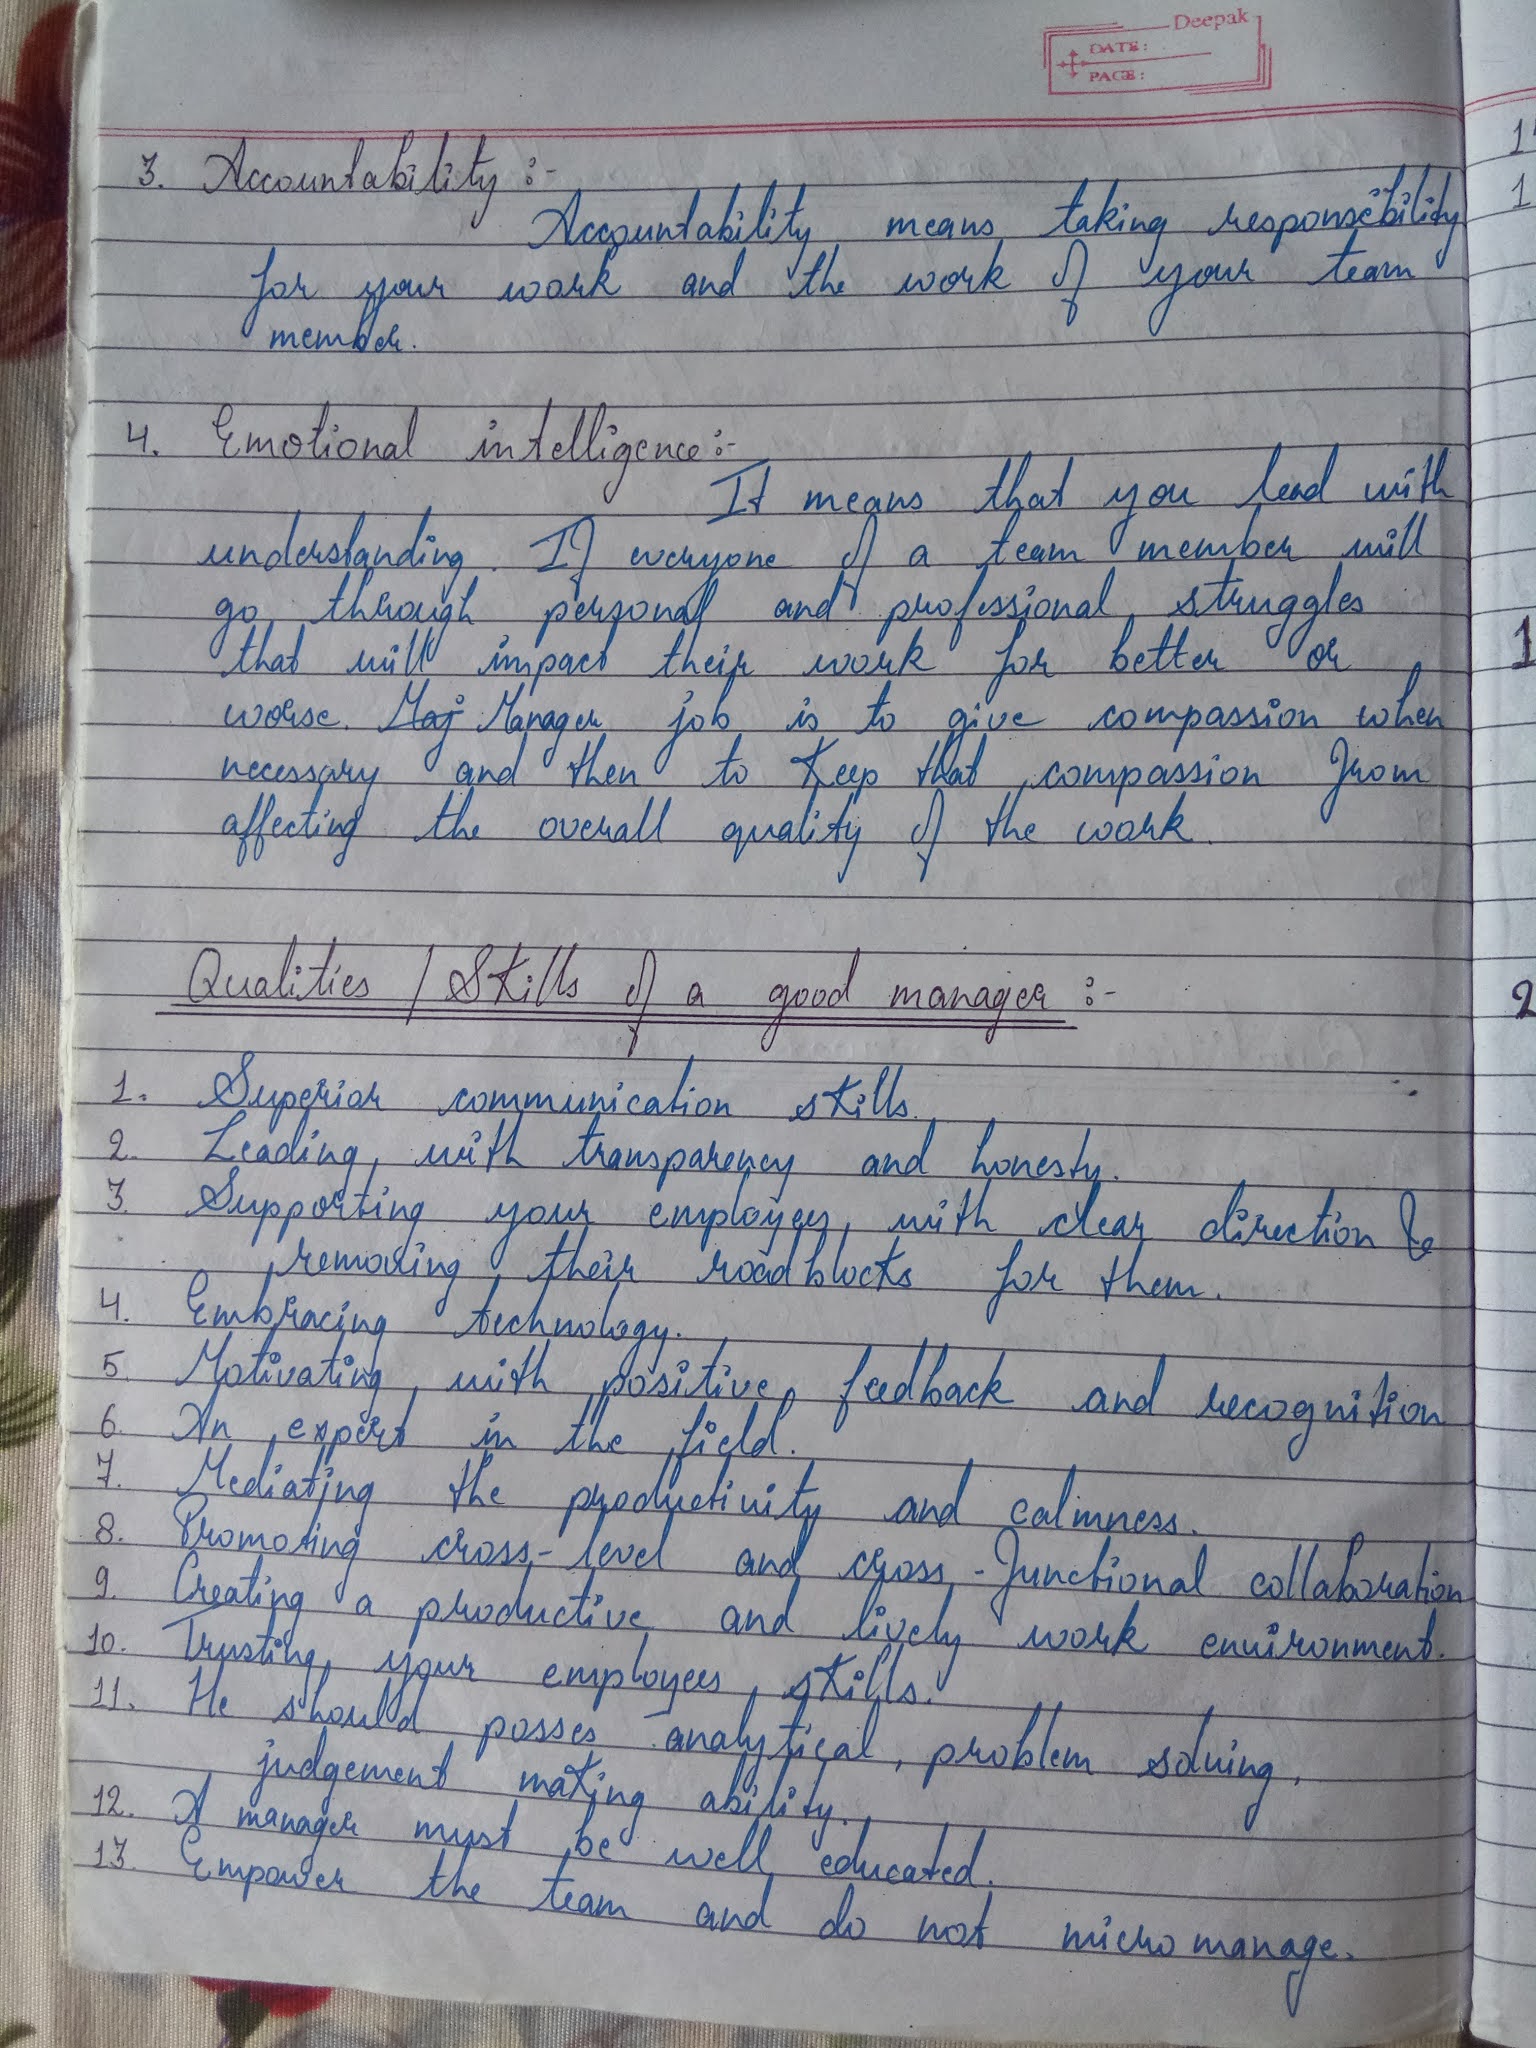 Deepak
DATE:
PAGE:
3. Accountability :-
Accountability means taking responsibility
for your work and the work of your team
member.
4. Emotional intelligence:-
It means that you lead with
understanding. If everyone of a team member will
go through personal and professional struggles
that will impact their work for better or
worse. Maj Manager job is to give compassion when
necessary and then to keep that compassion from
affecting the overall quality of the work.
Qualities / Skills of a good manager :-
1. Superior communication skills.
2. Leading with transparency and honesty.
3. Supporting your employees with clear direction &
removing their roadblocks for them.
4. Embracing technology.
5. Motivating with positive feedback and recognition
6. An expert in the field.
7. Mediating the productivity and calmness.
8. Promoting cross-level and cross-functional collaboration
9. Creating a productive and lively work environment.
10. Trusting your employees skills.
11. He should posses analytical, problem solving,
judgement making ability.
12. A manager must be well educated.
13. Empower the team and do not micro manage.
1
1
2